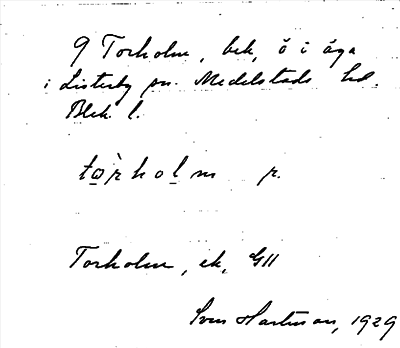 9 Torholm, bek, ö i åga
i Listerby sn. Medelstads hd.
Blek. l.
tò̲rhol̲m p.
Torholm, ek, GII
Sven Hartman, 1929